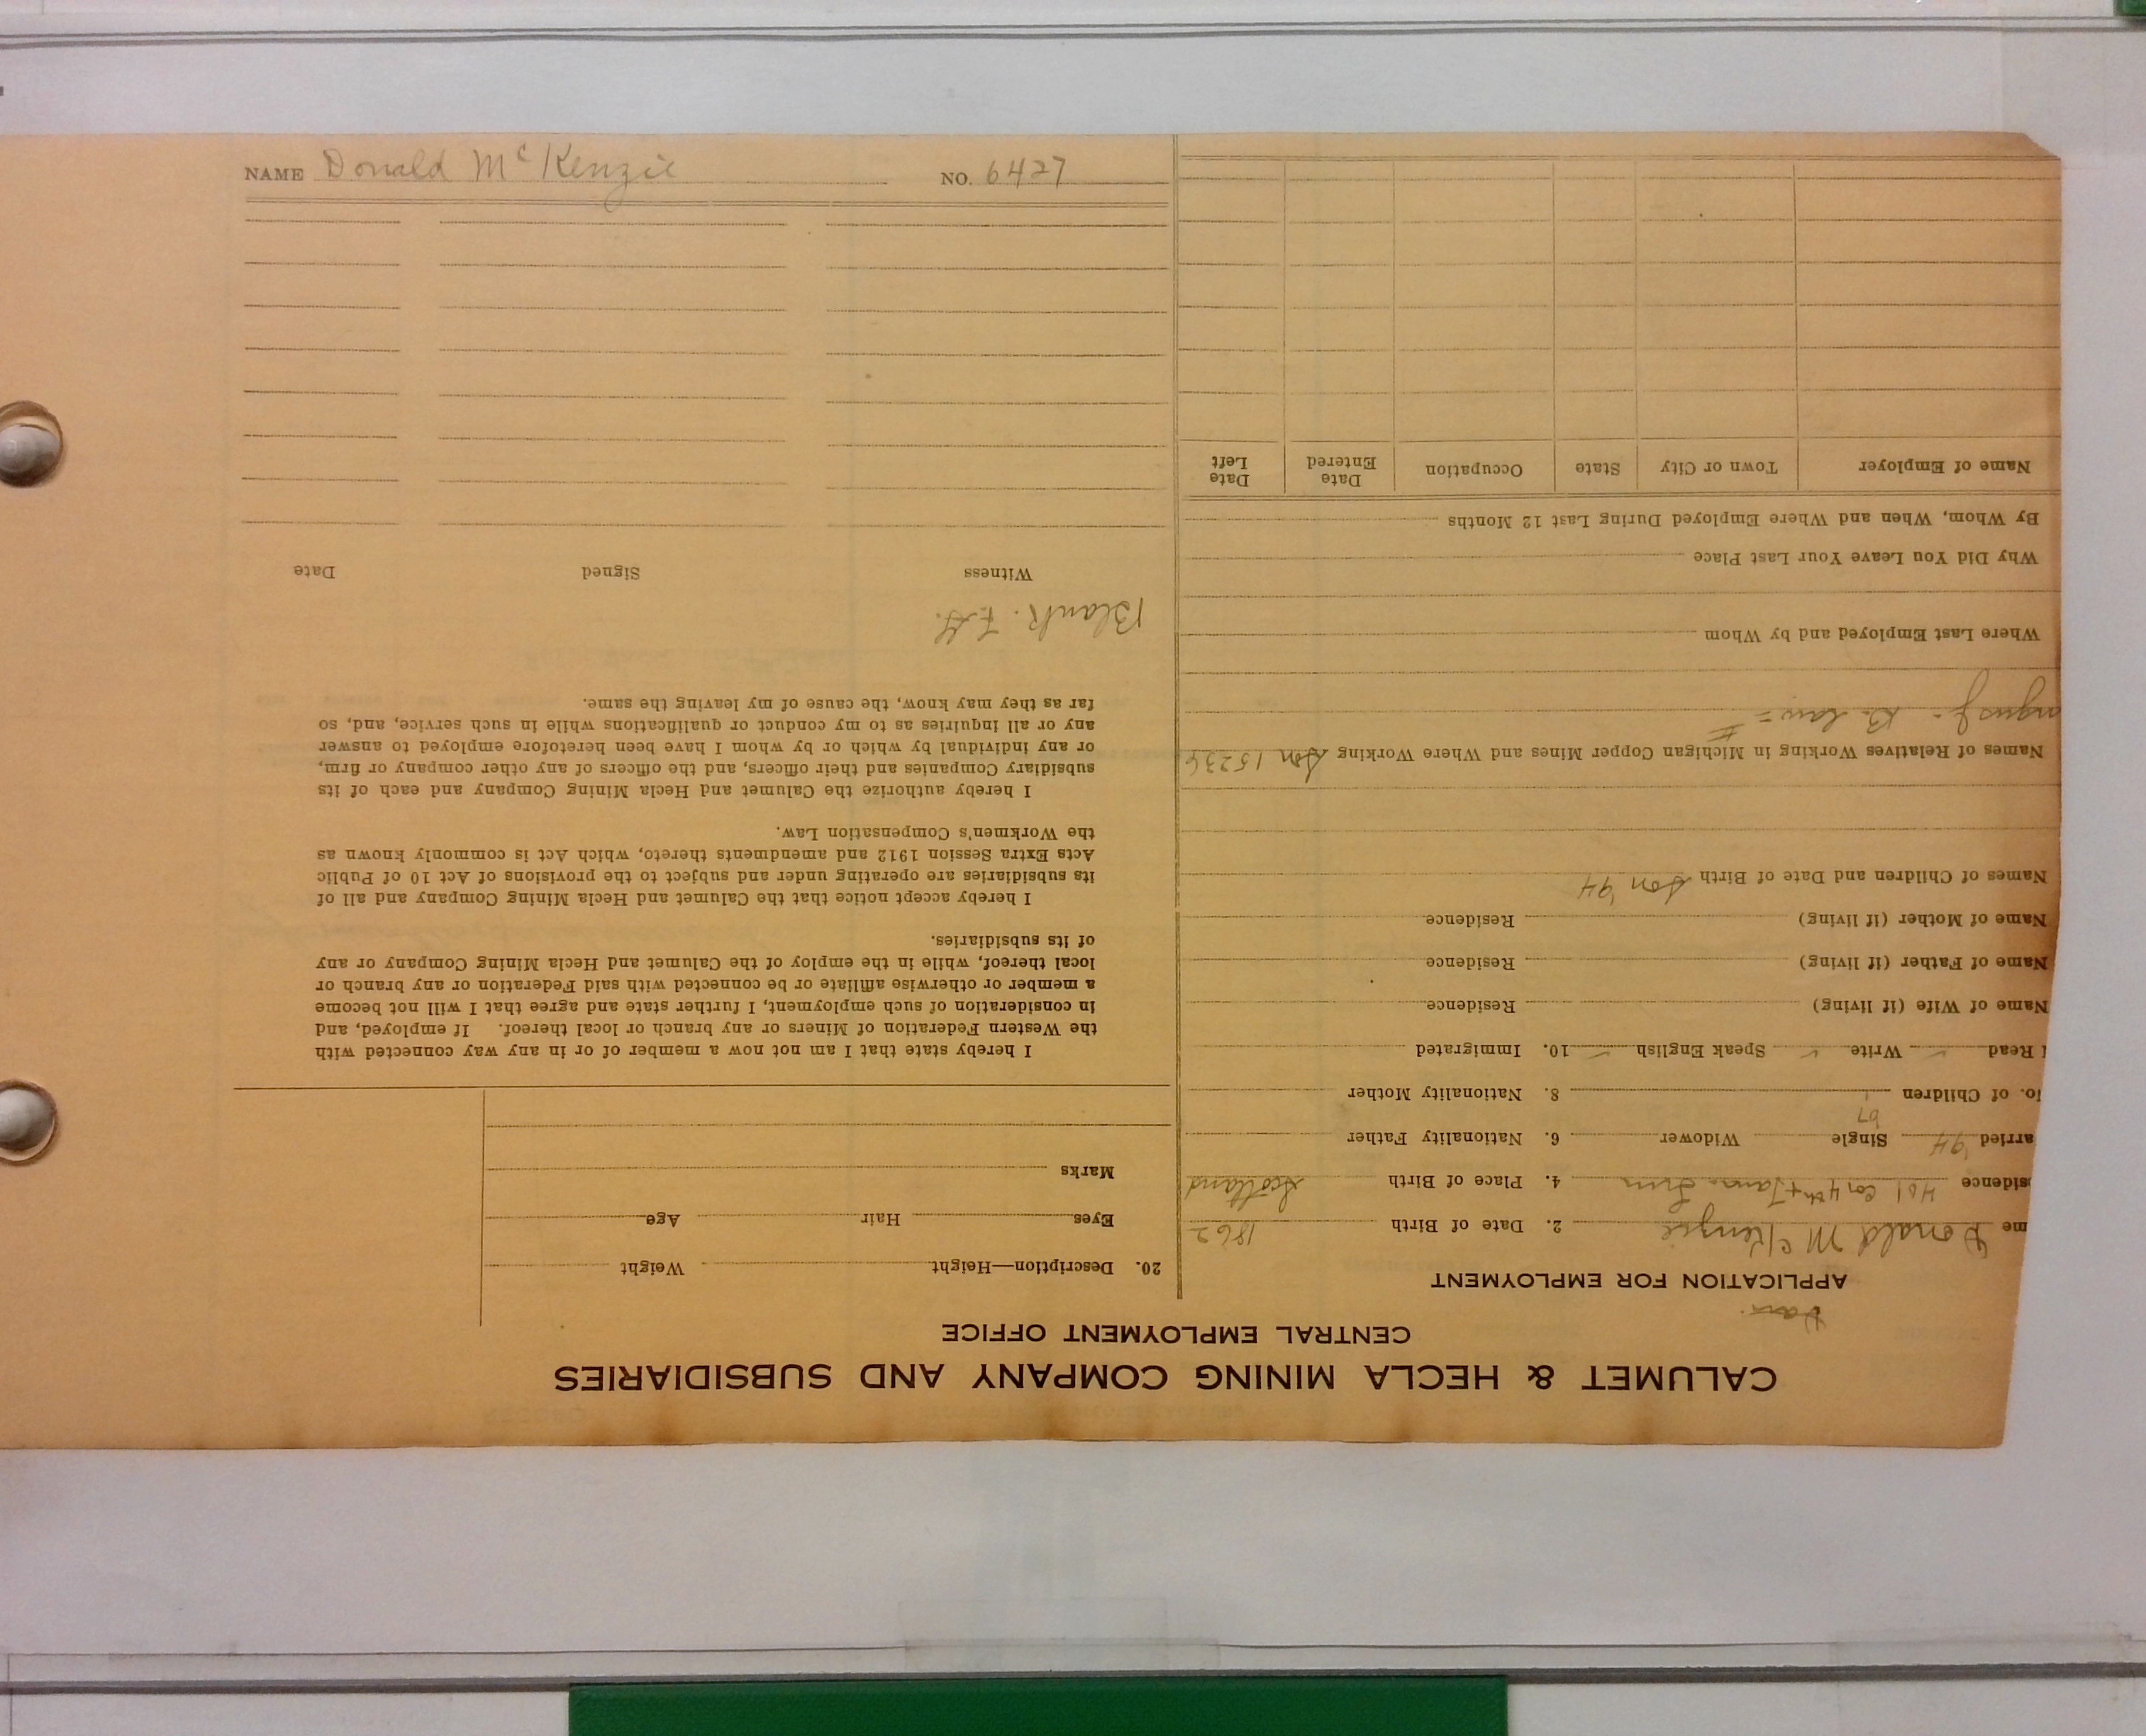 NAME Donald McKenzie NO. 6427
CALUMET & HECLA MINING COMPANY AND SUBSIDIARIES
CENTRAL EMPLOYMENT OFFICE
APPLICATION FOR EMPLOYMENT
me Donald McKenzie 2. Date of Birth 1862
sidence 401 Cor 4th + Tam. 4. Place of Birth Scotland
arried '94 Single Widower 6. Nationality Father
67
o. of Children 1 8. Nationality Mother
Read ✓ Write ✓ Speak English ✓ 10. Immigrated
Name of Wife (if living) Residence
Name of Father (if living) Residence
Name of Mother (if living) Residence
Names of Children and Date of Birth Son '94
Names of Relatives Working in Michigan Copper Mines and Where Working Son 15236
angus J - B. law =
Where Last Employed and by Whom
Why Did You Leave Your Last Place
By Whom, When and Where Employed During Last 12 Months
Name of Employer Town or City State Occupation Date Entered Date Left
20. Description—Height Weight
Eyes Hair Age
Marks
I hereby state that I am not now a member of or in any way connected with
the Western Federation of Miners or any branch or local thereof. If employed, and
in consideration of such employment, I further state and agree that I will not become
a member or otherwise affiliate or be connected with said Federation or any branch or
local thereof, while in the employ of the Calumet and Hecla Mining Company or any
of its subsidiaries.
I hereby accept notice that the Calumet and Hecla Mining Company and all of
its subsidiaries are operating under and subject to the provisions of Act 10 of Public
Acts Extra Session 1912 and amendments thereto, which Act is commonly known as
the Workmen's Compensation Law.
I hereby authorize the Calumet and Hecla Mining Company and each of its
subsidiary Companies and their officers, and the officers of any other company or firm,
or any individual by which or by whom I have been heretofore employed to answer
any or all inquiries as to my conduct or qualifications while in such service, and, so
far as they may know, the cause of my leaving the same.
Blank. F.G.
Witness Signed Date